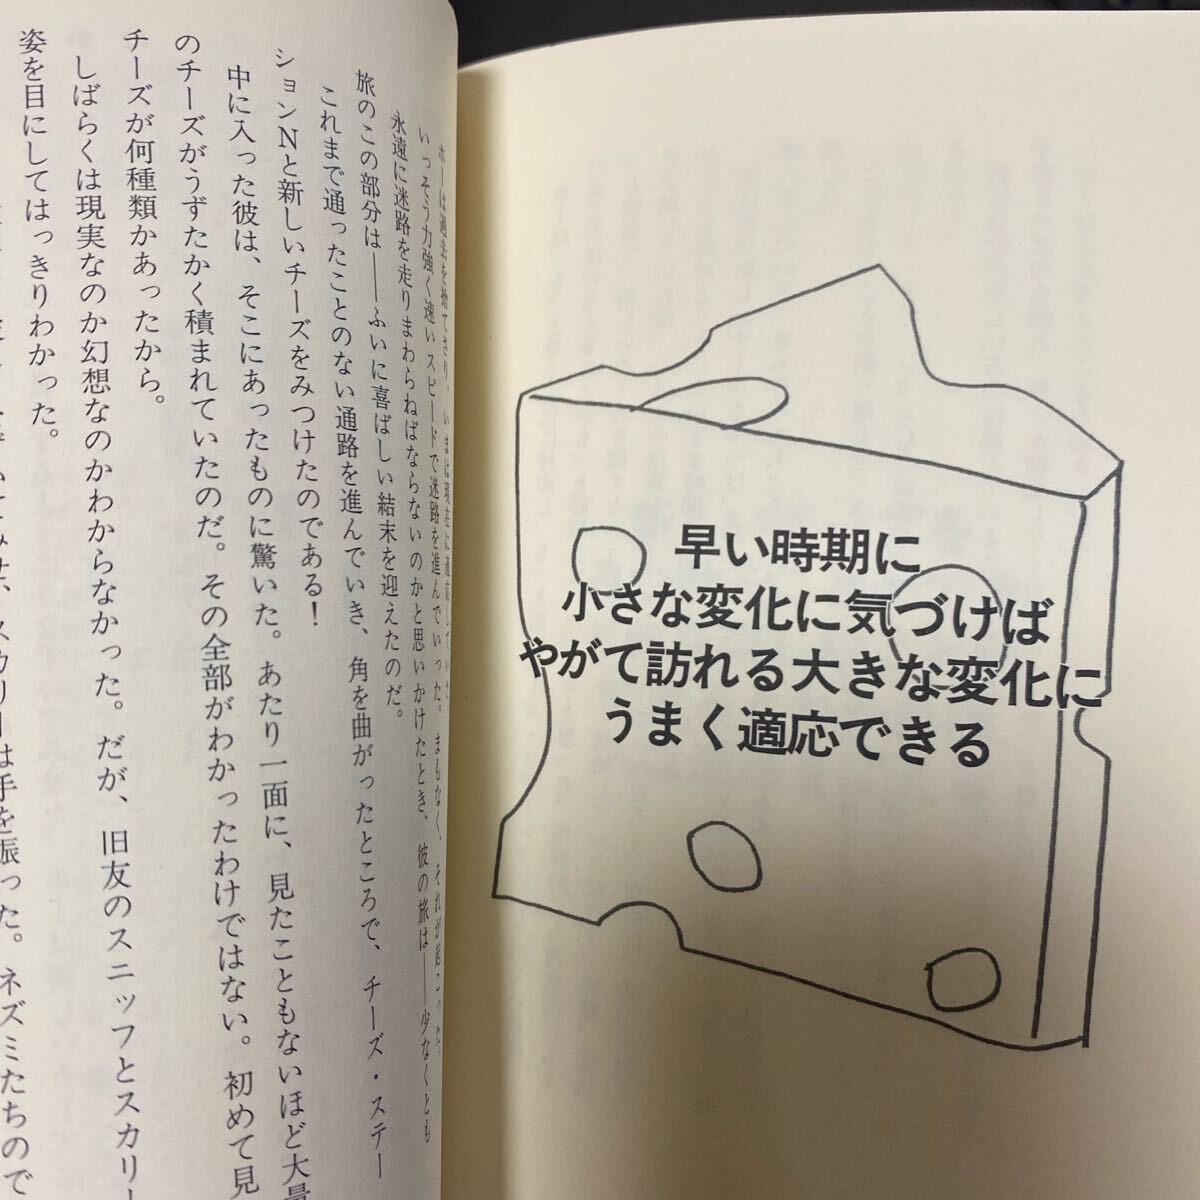 早い時期に
小さな変化に気づけば
やがて訪れる大きな変化に
うまく適応できる
ホーは過去を捨てさり、いまは現在に適応していた。
いっそう力強く速いスピードで迷路を進んでいった。まもなく、それが起こった。
永遠に迷路を走りまわらねばならないのかと思いかけたとき、彼の旅は――少なくとも
旅のこの部分は――ふいに喜ばしい結末を迎えたのだ。
これまで通ったことのない通路を進んでいき、角を曲がったところで、チーズ・ステー
ションNと新しいチーズをみつけたのである！
中に入った彼は、そこにあったものに驚いた。あたり一面に、見たこともないほど大量
のチーズがうずたかく積まれていたのだ。その全部がわかったわけではない。初めて見
チーズが何種類かあったから。
しばらくは現実なのか幻想なのかわからなかった。だが、旧友のスニッフとスカリー
姿を目にしてはっきりわかった。
スカリーは手を振った。ネズミたちので